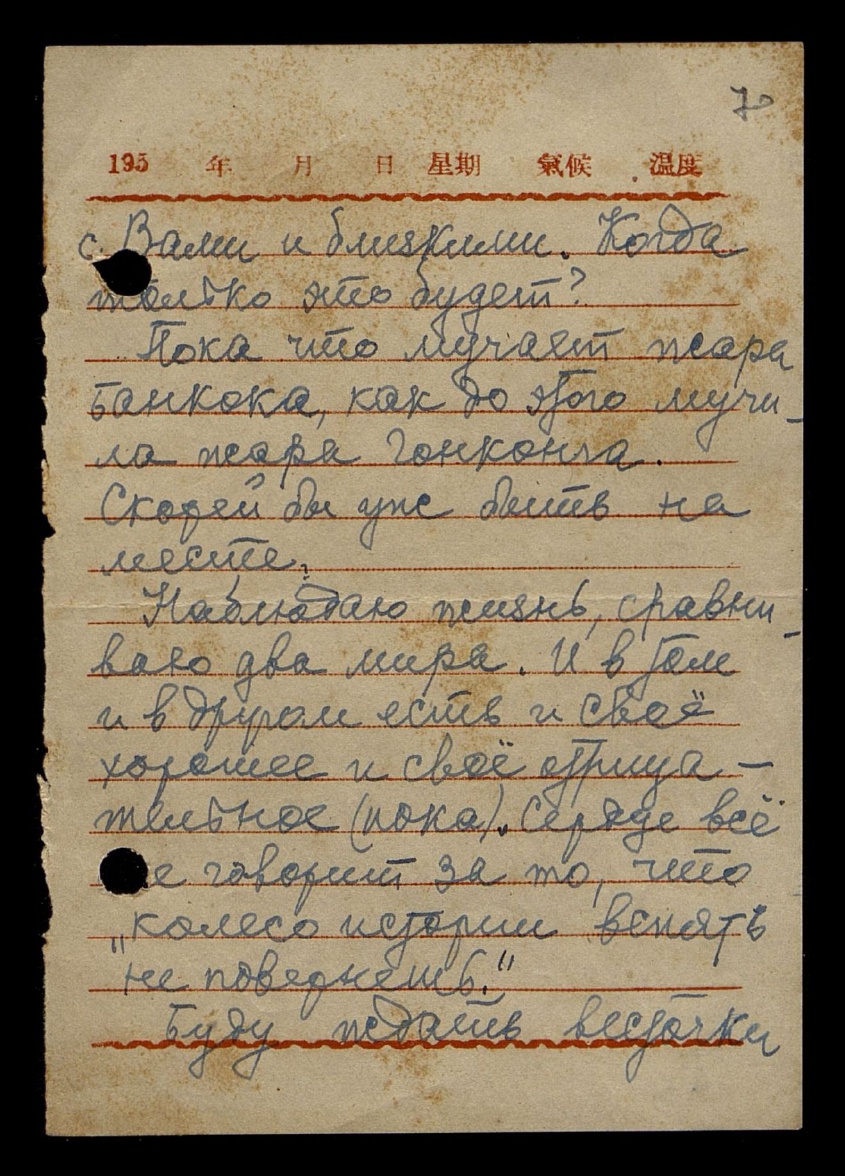 70
195 年 月 日 星期 氣候 溫度
с Вами и близкими. Когда
только это будет?
Пока что мучает жара
Банкока, как до этого мучи-
ла жара Гонконга.
Скорей бы уже быть на
месте.
Наблюдаю жизнь, сравни-
ваю два мира. И в том
и в другом есть и своё
хорошее и своё отрица-
тельное (пока). Сердце всё
же говорит за то, что
„колесо истории вспять
не повернешь."
Буду ждать весточки